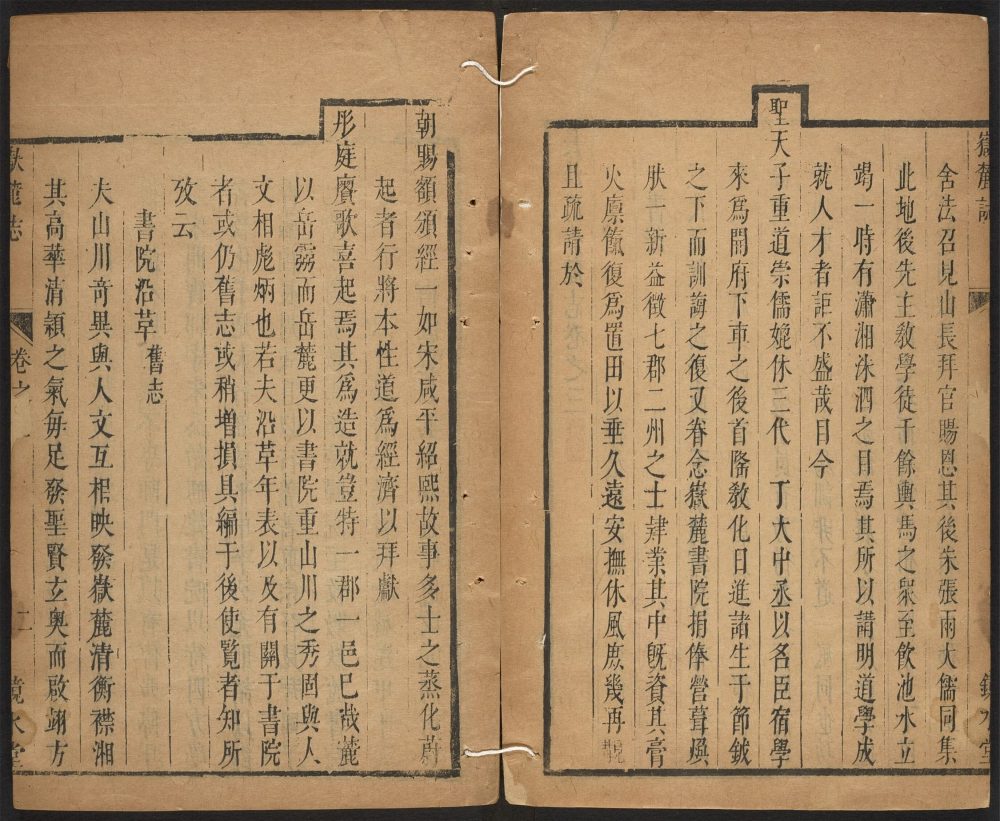 嶽麓誌
鏡水堂
舍法召見山長拜官賜恩其後朱張兩大儒同集
此地後先主敎學徒千餘輿馬之衆至飮池水立
竭一時有瀟湘洙泗之目焉其所以講明道學成
就人才者詎不盛哉目今
聖天子重道崇儒媲休三代丁大中丞以名臣宿學
來爲開府下車之後首隆敎化日進諸生于節鉞
之下而訓誨之復又眷念嶽麓書院捐俸營葺煥
肰一新益徵七郡二州之士肄業其中旣資其膏
火廩餼復爲置田以垂久遠安撫休風庶幾再覩
且疏請於
朝賜額頒經一如宋咸平紹熙故事多士之蒸化蔚
起者行將本性道爲經濟以拜獻
彤庭賡歌喜起焉其爲造就豈特一郡一邑已哉麓
以岳霛而岳麓更以書院重山川之秀固與人
文相彪炳也若夫沿革年表以及有關于書院
者或仍舊志或稍增損具編于後使覧者知所
攷云
書院沿革 舊志
夫山川奇異與人文互相映發嶽麓清衡襟湘
其高華清穎之氣每足發聖賢玄奧而啟翊方
嶽麓志
卷之
二
鏡水堂